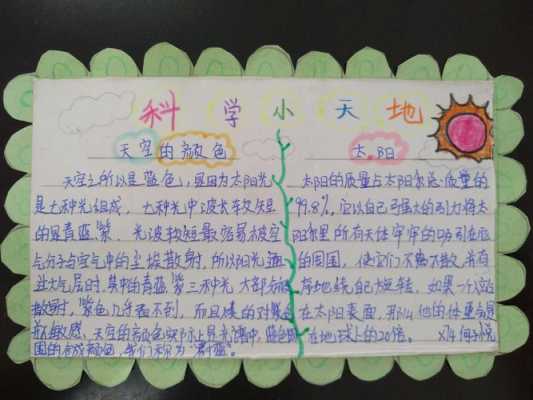 科学小天地
天空的颜色
天空之所以是蓝色，是因为太阳光
是七种光组成，七种光中波长较短
的是青蓝紫，光波较短最容易被空
气分子与空气中的尘埃散射，所以阳光通
过大气层时，其中的青蓝紫三种光大部分被
散射，紫色几乎看不到，而且
敏感，天空的颜色实际上是
的合成颜色，我们称为“蔚蓝”。
太阳
太阳的质量占太阳系总质量的
99.8%，它以自己强大的引力将太
阳系里所有天体牢牢的吸引在
的周围，使它们不离不散，并有
序地绕自己旋转，如果一个人站
在太阳表面，那么他的体重会是
在地球上的20倍。